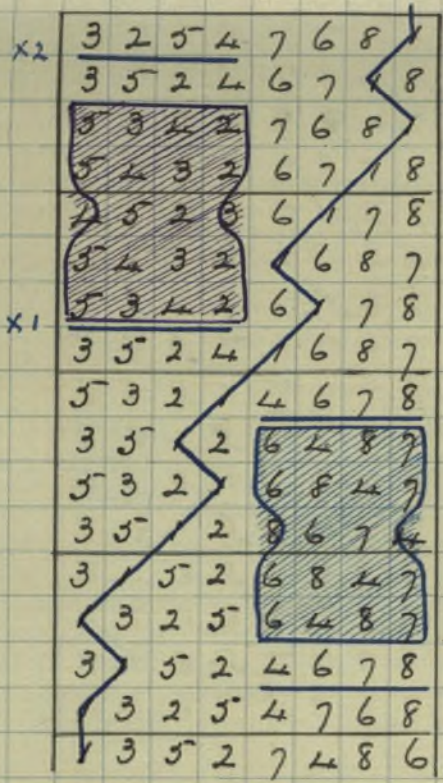 x2 3 2 5 4 7 6 8 1
3 5 2 4 6 7 1 8
5 3 4 2 7 6 8 1
5 4 3 2 6 7 1 8
4 5 2 3 6 1 7 8
5 4 3 2 1 6 8 7
x1 5 3 4 2 6 1 7 8
3 5 2 4 1 6 8 7
5 3 2 1 4 6 7 8
3 5 1 2 6 4 8 7
5 3 2 1 6 8 4 7
3 5 1 2 8 6 7 4
3 1 5 2 6 8 4 7
1 3 2 5 6 4 8 7
3 1 5 2 4 6 7 8
1 3 2 5 4 7 6 8
1 3 5 2 7 4 8 6